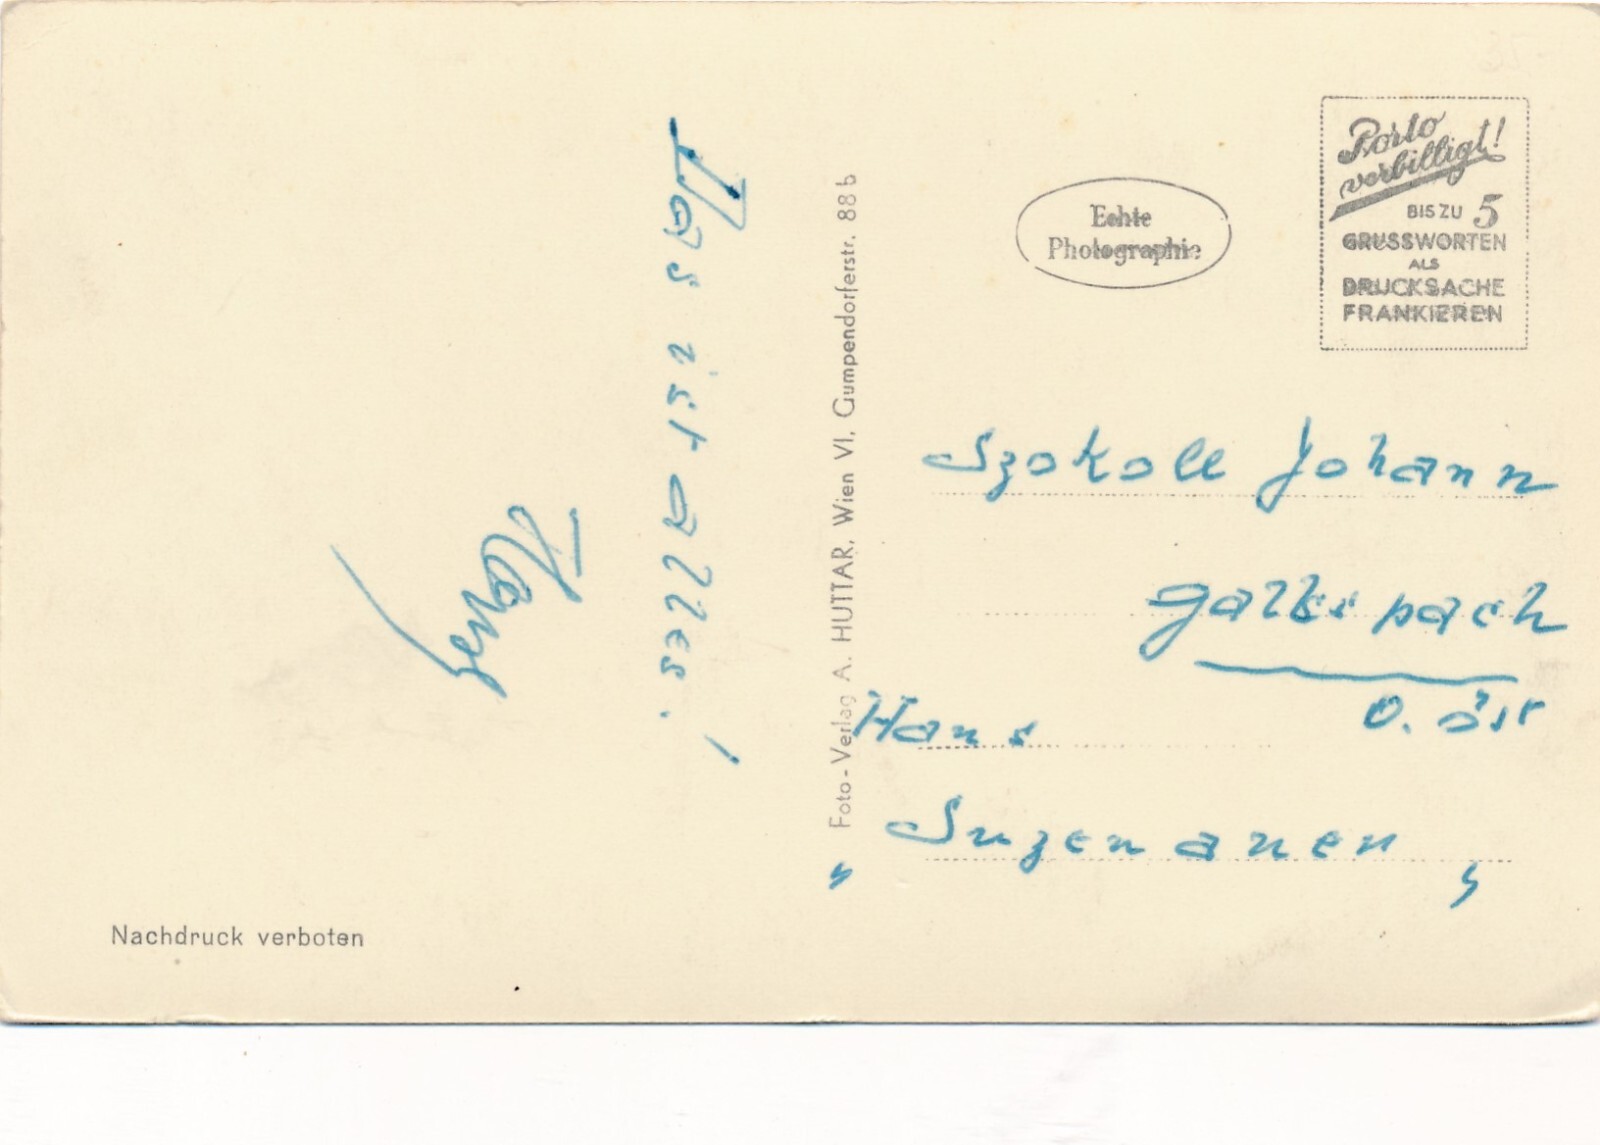 Das ist alles!
Hansl
Nachdruck verboten
Foto-Verlag A. HUTTAR, Wien VI, Gumpendorferstr. 88 b
Echte
Photographie
Porto
verbilligt!
BIS ZU 5
GRUSSWORTEN
ALS
DRUCKSACHE
FRANKIEREN
Szokoll Johann
Gallspach
O. Öst
Hans